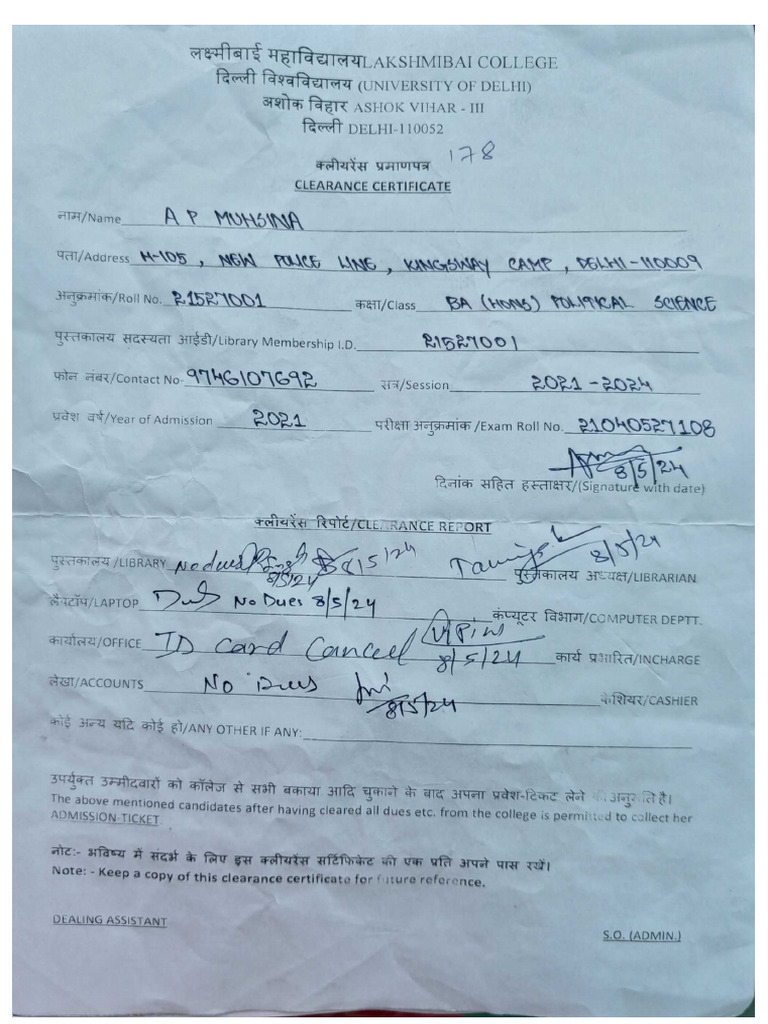 लक्ष्मीबाई महाविद्यालय LAKSHMIBAI COLLEGE
दिल्ली विश्वविद्यालय (UNIVERSITY OF DELHI)
अशोक विहार ASHOK VIHAR - III
दिल्ली DELHI-110052
क्लीयरेंस प्रमाणपत्र 178
CLEARANCE CERTIFICATE
नाम/Name A P MUHSINA
पता/Address H-105, NEW POLICE LINE, KINGSWAY CAMP, DELHI-110009
अनुक्रमांक/Roll No. 21527001 कक्षा/Class BA (HONS) POLITICAL SCIENCE
पुस्तकालय सदस्यता आईडी/Library Membership I.D. 21527001
फोन नंबर/Contact No 9746107692 सत्र/Session 2021-2024
प्रवेश वर्ष/Year of Admission 2021 परीक्षा अनुक्रमांक/Exam Roll No. 21040527108
8/5/24
दिनांक सहित हस्ताक्षर/(Signature with date)
क्लीयरेंस रिपोर्ट/CLEARANCE REPORT
पुस्तकालय/LIBRARY No dues 8/5/24 8/5/24 8/5/24 पुस्तकालय अध्यक्ष/LIBRARIAN
लैपटॉप/LAPTOP No Dues 8/5/24 कंप्यूटर विभाग/COMPUTER DEPTT.
कार्यालय/OFFICE ID Card Cancel Vipin 8/5/24 कार्य प्रभारित/INCHARGE
लेखा/ACCOUNTS No Dues 8/5/24 केशियर/CASHIER
कोई अन्य यदि कोई हो/ANY OTHER IF ANY:
उपर्युक्त उम्मीदवारों को कॉलेज से सभी बकाया आदि चुकाने के बाद अपना प्रवेश-टिकट लेने की अनुमति है।
The above mentioned candidates after having cleared all dues etc. from the college is permitted to collect her
ADMISSION-TICKET
नोट:- भविष्य में संदर्भ के लिए इस क्लीयरेंस सर्टिफिकेट की एक प्रति अपने पास रखें।
Note: - Keep a copy of this clearance certificate for future reference.
DEALING ASSISTANT
S.O. (ADMIN.)